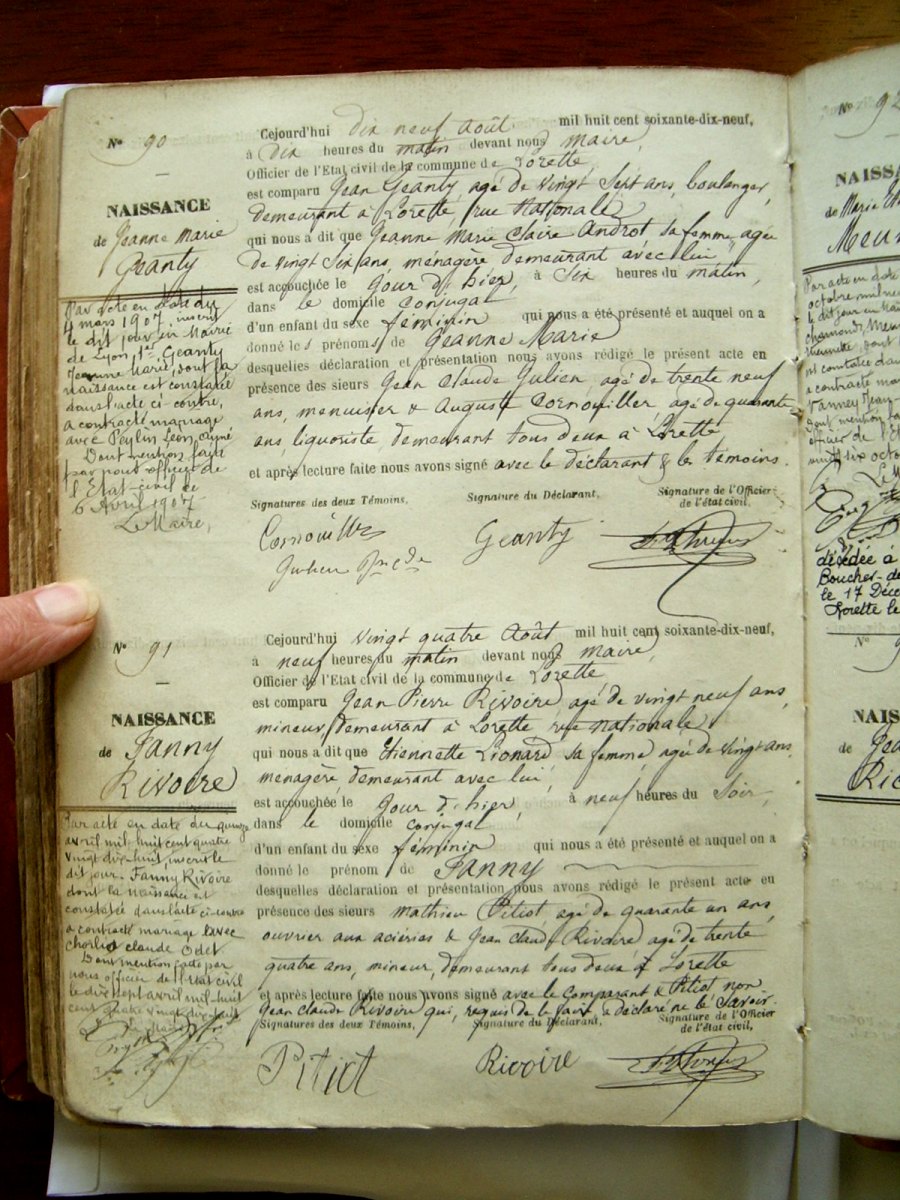 Nº 90
NAISSANCE
de Jeanne Marie
Géanty
Par acte en date du
4 mars 1907, inscrit
le dit jour en Mairie
de Lyon, 1er, Géanty
Jeanne Marie, dont la
naissance est constatée
dans l'acte ci-contre,
a contracté mariage
avec Peylin Léon, Aimé
Dont mention faite
par nous officier de
l'Etat-civil le
6 Avril 1907
Le Maire,
Cejourd'hui dix neuf Août mil huit cent soixante-dix-neuf,
à dix heures du matin devant nous Maire,
Officier de l'Etat civil de la commune de Lorette,
est comparu Jean Géanty, agé de vingt sept ans, boulanger,
demeurant à Lorette, rue Nationale,
qui nous a dit que Jeanne Marie Claire Androt sa femme, agée
de vingt six ans, ménagère demeurant avec lui,
est accouchée le jour d'hier, à six heures du matin,
dans le domicile conjugal
d'un enfant du sexe féminin qui nous a été présenté et auquel on a
donné les prénoms de Jeanne Marie
desquelles déclaration et présentation nous avons rédigé le présent acte en
présence des sieurs Jean Claude Julien, agé de trente neuf
ans, menuisier & Auguste Cornouiller agé de quarante
ans, liquoriste demeurant tous deux à Lorette
et après lecture faite nous avons signé avec le déclarant & les témoins.
Signatures des deux Témoins, Signature du Déclarant, Signature de l'Officier
de l'état civil,
Cornouiller Géanty
Julien
Nº 91
NAISSANCE
de Fanny
Rivoire
Par acte en date du quinze
avril mil huit cent quatre
vingt dix-huit, inscrit le
dit jour. Fanny Rivoire
dont la naissance est
constatée dans l'acte ci-contre
a contracté mariage avec
claude Odet
Dont mention faite par
nous officier de l'Etat civil
le dix sept avril mil huit
cent quatre vingt dix huit
Cejourd'hui vingt quatre Août mil huit cent soixante-dix-neuf,
à neuf heures du matin devant nous Maire,
Officier de l'Etat civil de la commune de Lorette,
est comparu Jean Pierre Rivoire, agé de vingt neuf ans,
mineur, demeurant à Lorette rue Nationale,
qui nous a dit que Etiennette Lionard, sa femme, agée de vingt ans
menagère, demeurant avec lui,
est accouchée le jour d'hier, à neuf heures du soir,
dans le domicile conjugal
d'un enfant du sexe féminin qui nous a été présenté et auquel on a
donné le prénom de Fanny
desquelles déclaration et présentation nous avons rédigé le présent acte en
présence des sieurs Mathieu Pitiot agé de quarante un ans,
ouvrier aux aciéries & Jean Claude Rivoire, agé de trente
quatre ans, mineur, demeurant tous deux à Lorette
et après lecture faite nous avons signé avec le Comparant & Pitiot non
Jean Claude Rivoire qui, requis de le faire, a déclaré ne le savoir.
Signatures des deux Témoins, Signature du Déclarant, Signature de l'Officier
de l'état civil,
Pitiot Rivoire
Nº 92
NAISSA
de Marie
Meun
Par acte en date
octobre mil neuf
le dit jour en
a contracté
décédée à
Boucher-de
le 17 Déce
Lorette le
Nº 9
NAIS
de Jea
Ric